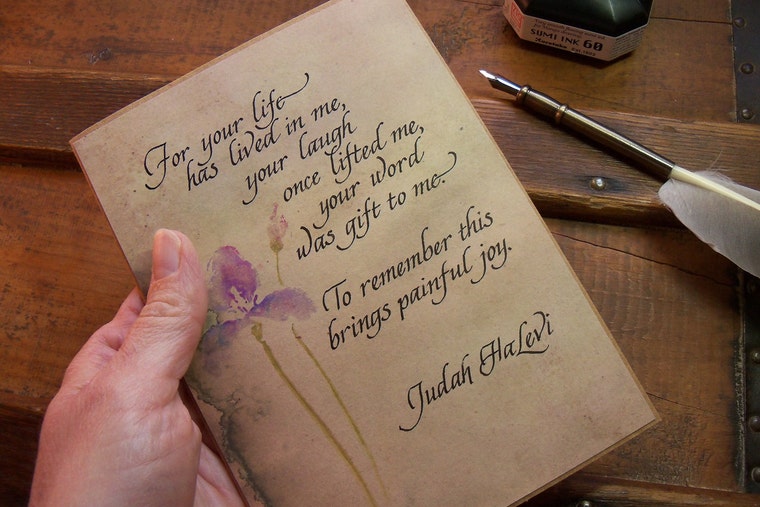 SUMI INK 60
For your life
has lived in me,
your laugh
once lifted me,
your word
was gift to me.
To remember this
brings painful joy.
Judah HaLevi